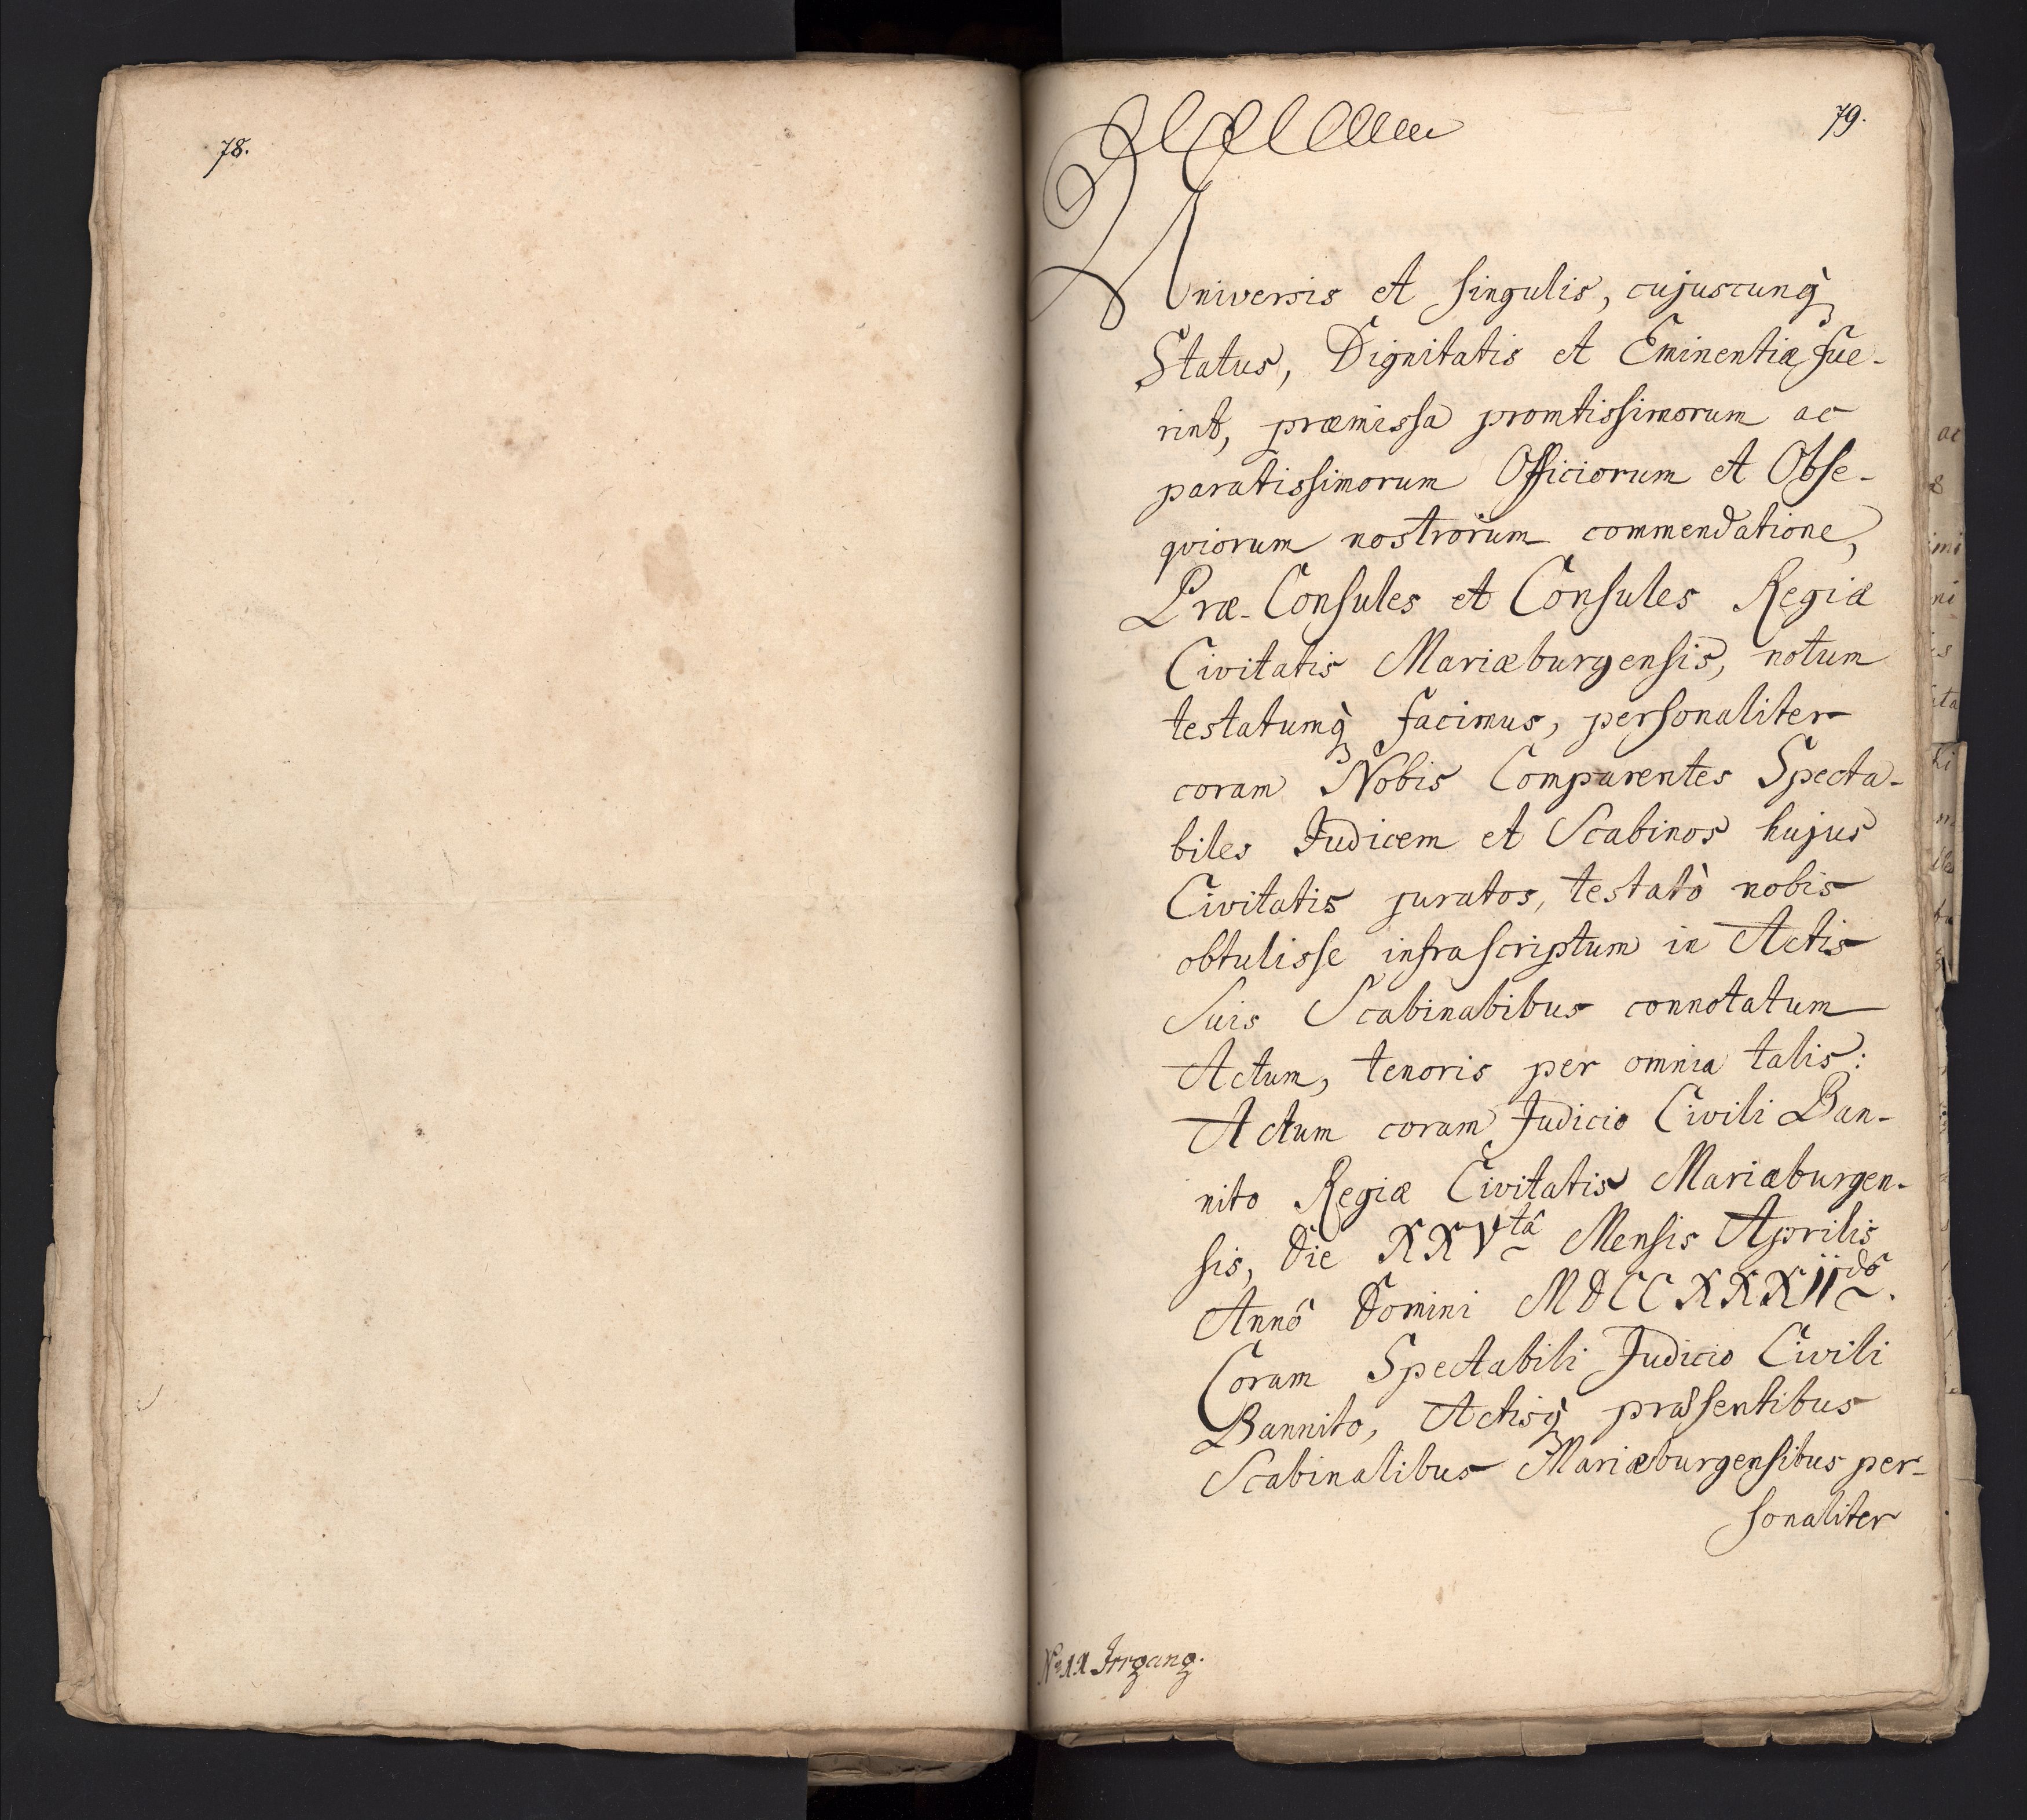 78.
79.
Universis et singulis, cujuscunq̀
Status, Dignitatis et Eminentiæ fue-
rint, præmissa promtissimorum ac
paratissimorum Officiorum et Obse-
qviorum nostrorum commendatione,
Præ-Consules et Consules Regiæ
Civitatis Mariæburgensis, notum
testatumq̀ facimus, personaliter
coram Nobis Comparentes Specta-
biles Judicem et Scabinos hujus
Civitatis juratos, testatò nobis
obtulisse infrascriptum in Actis
Suis Scabinabibus connotatum
Actum, tenoris per omnia talis:
Actum coram Judicio Civili Ban-
nito Regiæ Civitatis Mariæburgen-
sis, die XXVtâ Mensis Aprilis
Annô Domini MDCCXXXIIdô.
Coram Spectabili Judicio Civili
Bannito, Actisq̀ præsentibus
Scabinalibus Mariæburgensibus per-
sonaliter
No 11 Irrgang.